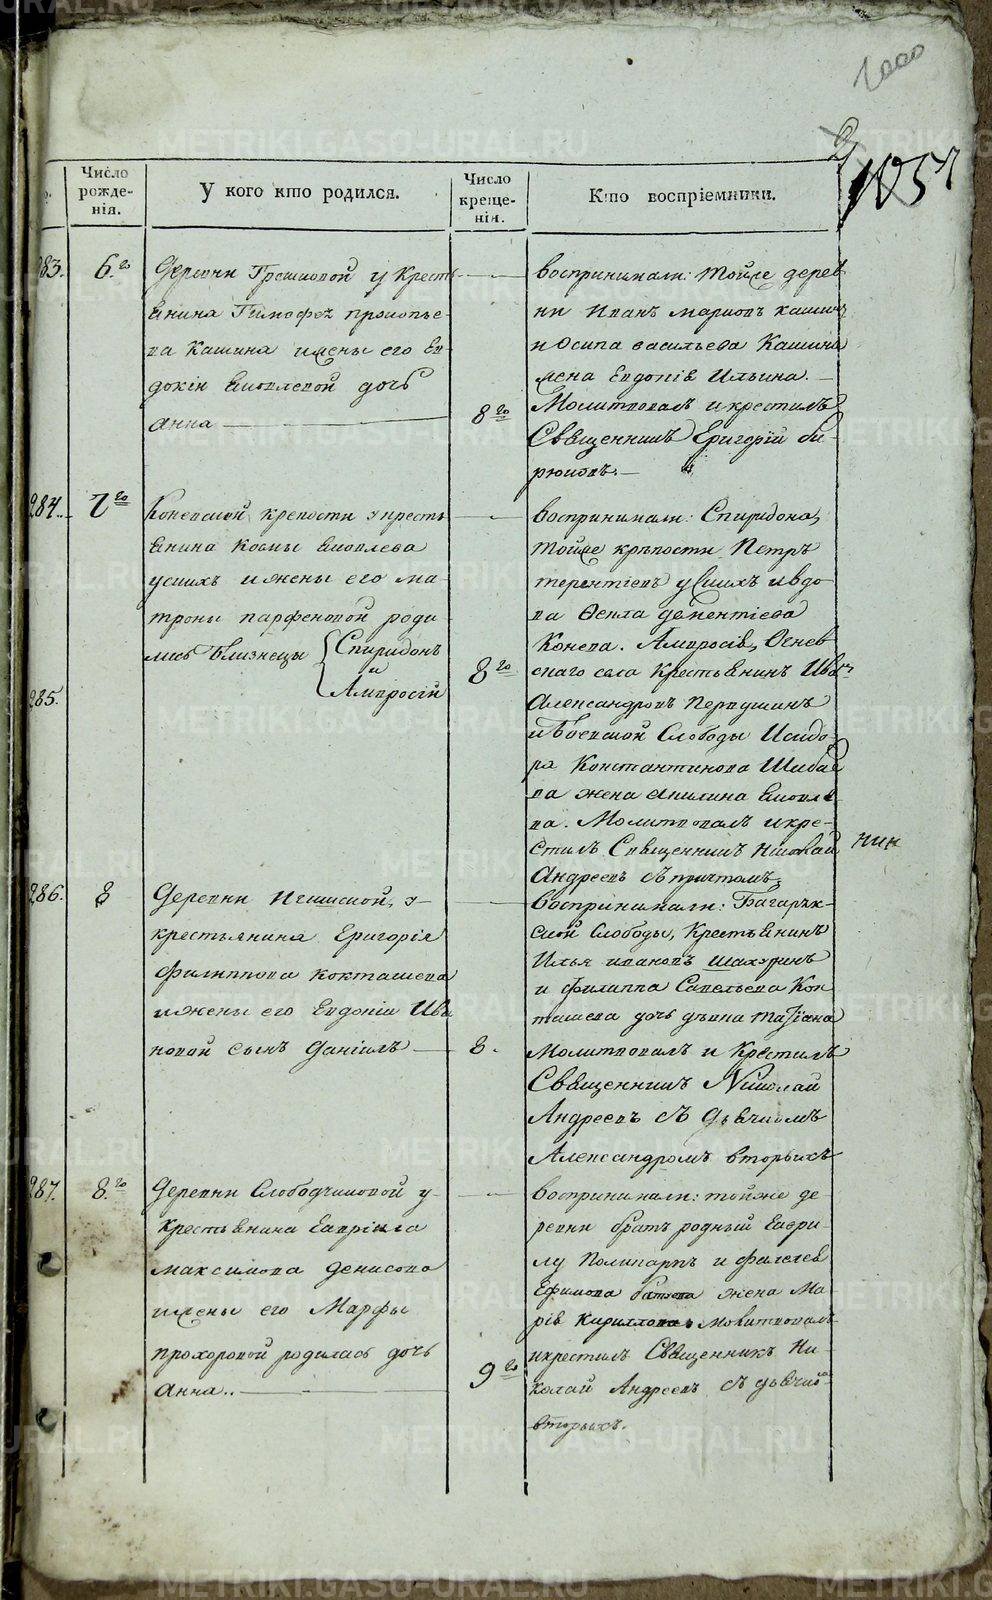 1000
1057
Число рожде-нія.
У кого кто родился.
Число креще-нія.
Кто воспріемники.
283.
6.го
Деревни Грешновой у Кресть
янина Тимофея прокопье-
ва Кашина и жены его Ев-
докіи Яковлевой дочь
Анна
8го
воспринимали: тойже дерев
ни Иванъ марковъ кашинъ
и Осипа васильева Кашина
жена Евдокія Ильина.
Молитвовалъ и крестилъ
Священникъ Григорій Би-
рюковъ.
284.
7го
Коневской крепости у кресть
янина Космы Яковлева
усихъ и жены его ма-
троны парфеновой роди
лись близнецы Спиридонъ
и
Амвросій
285.
8го
воспринимали: Спиридона,
тойже крѣпости Петръ
терентіевъ усихъ и вдо-
ва Фекла дементіева
Конева. Амвросія, Огнев
скаго села Крестьянинъ Иванъ
Александровъ Первушинъ
и Боевской Слободы Исидо-
ра Константинова Шибае
ва жена Акилина Яковле-
ва. Молитвовалъ и кре-
стилъ Священникъ Николай
Андреевъ съ причтомъ.
286.
8
Деревни Игишской, у
крестьянина Григорія
Филиппова Кокташева
и жены его Евдокіи Ива
новой сынъ Даніилъ
8.
Воспринимали: Багаряк-
ской Слободы, Крестьянинъ
Илья ивановъ шахуринъ
и Филиппа Савельева Кок
ташева дочь дѣвка Татіана
Молитвовалъ и Крестилъ
Священникъ Николай
Андреевъ съ Дьячкомъ
Александромъ вторыхъ
287.
8.го
Деревни Слободчиковой у
крестьянина Гавріила
максимова Денисова
и жены его Марфы
прохоровой родилась дочь
Анна..
9го
воспринимали: тойже де-
ревни братъ родный Гаври-
лу Поликарпъ и
Ефимова жена Ма-
рія Кириллова. Молитвовалъ
и крестилъ Священникъ Ни-
колай Андреевъ съ дьячко
вторыхъ.
METRIKI.GASO-URAL.RU